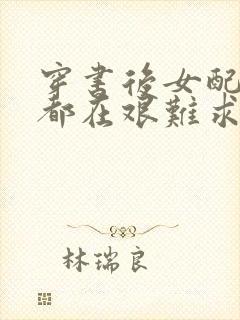 穿書後女配
都在艱難求
林瑞良